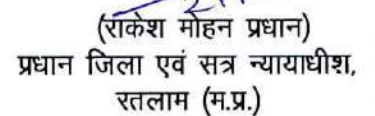 (राकेश मोहन प्रधान)
प्रधान जिला एवं सत्र न्यायाधीश,
रतलाम (म.प्र.)